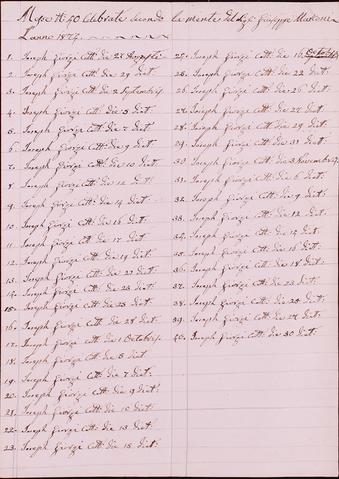 Messe Nº 40 Celebrate secondo la mente del Sig. Giuseppe
L'anno 1874.
1. Joseph Giorgi Cott: die 28 Augusti
2. Joseph Giorgi Cott: die 29 dict:
3. Joseph Giorgi Cott: die 2 Septembris
4. Joseph Giorgi Cott: die 5 dict:
5. Joseph Giorgi Cott: die 7 dict:
6. Joseph Giorgi Cott: die 9 dict:
7. Joseph Giorgi Cott: die 10 dict:
8. Joseph Giorgi Cott: die 12 dict:
9. Joseph Giorgi Cott: die 14 dict:
10. Joseph Giorgi Cott: die 16 dict:
11. Joseph Giorgi Cott: die 17 dict:
12. Joseph Giorgi Cott: die 19 dict:
13. Joseph Giorgi Cott: die dict:
14. Joseph Giorgi Cott: die 23 dict:
15. Joseph Giorgi Cott: die 25 dict:
16. Joseph Giorgi Cott: die 28 dict:
17. Joseph Giorgi Cott: die 1 Octobris
18. Joseph Giorgi Cott: die 5 dict
19. Joseph Giorgi Cott: die 7 dict:
20. Joseph Giorgi Cott: die 9 dict:
21. Joseph Giorgi Cott: die 10 dict:
22. Joseph Giorgi Cott: die 13 dict:
23. Joseph Giorgi Cott: die 15 dict:
25. Joseph Giorgi Cott: die 16 Octobris
26. Joseph Giorgi Cott: die 22 dict:
26. Joseph Giorgi Cott: die 26 dict:
27. Joseph Giorgi Cott: die 27 dict:
28. Joseph Giorgi Cott: die 29 dict:
29. Joseph Giorgi Cott: die 31 dict:
30. Joseph Giorgi Cott: die 3 Novembris
31. Joseph Giorgi Cott: die 6 dict:
32. Joseph Giorgi Cott: die 9 dict:
33. Joseph Giorgi Cott: die 12 dict:
34. Joseph Giorgi Cott: die 14 dict:
35. Joseph Giorgi Cott: die 16 dict:
36. Joseph Giorgi Cott: die 18 dict:
37. Joseph Giorgi Cott: die 23 dict:
38. Joseph Giorgi Cott: die dict:
39. Joseph Giorgi Cott: die dict:
40. Joseph Giorgi Cott: die 30 dict: